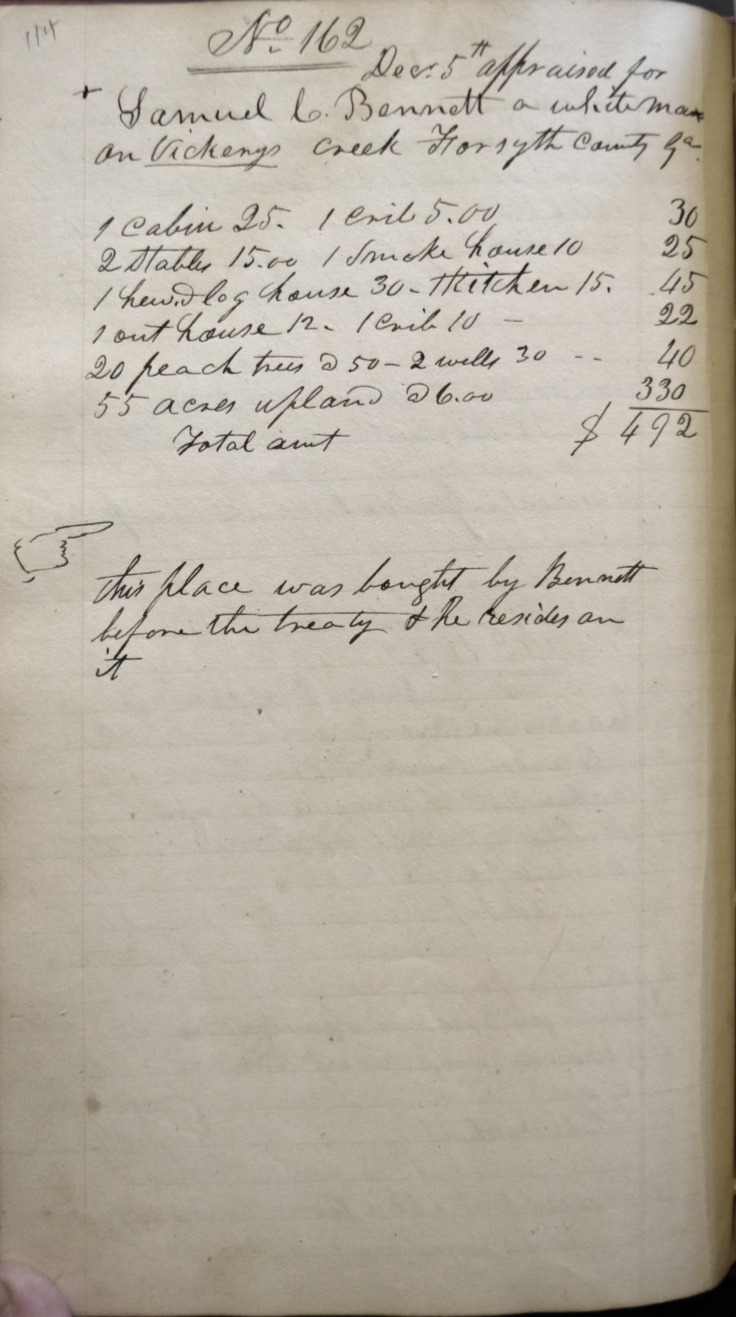 114
No. 162
Decr. 5th appraised for
Samuel C. Bennett a white man
on Vickerys Creek Forsyth County Ga.
1 Cabin 25. 1 Crib 5.00 30
2 Stables 15.00 1 Smoke house 10 25
1 hewd log house 30 - Kitchen 15. 45
1 out house 12 - 1 Crib 10 - 22
20 peach trees @ 50 - 2 wells 30 -- 40
55 acres upland @ 6.00 330
Total amt $ 492
this place was bought by Bennett
before the treaty & he resides on
it